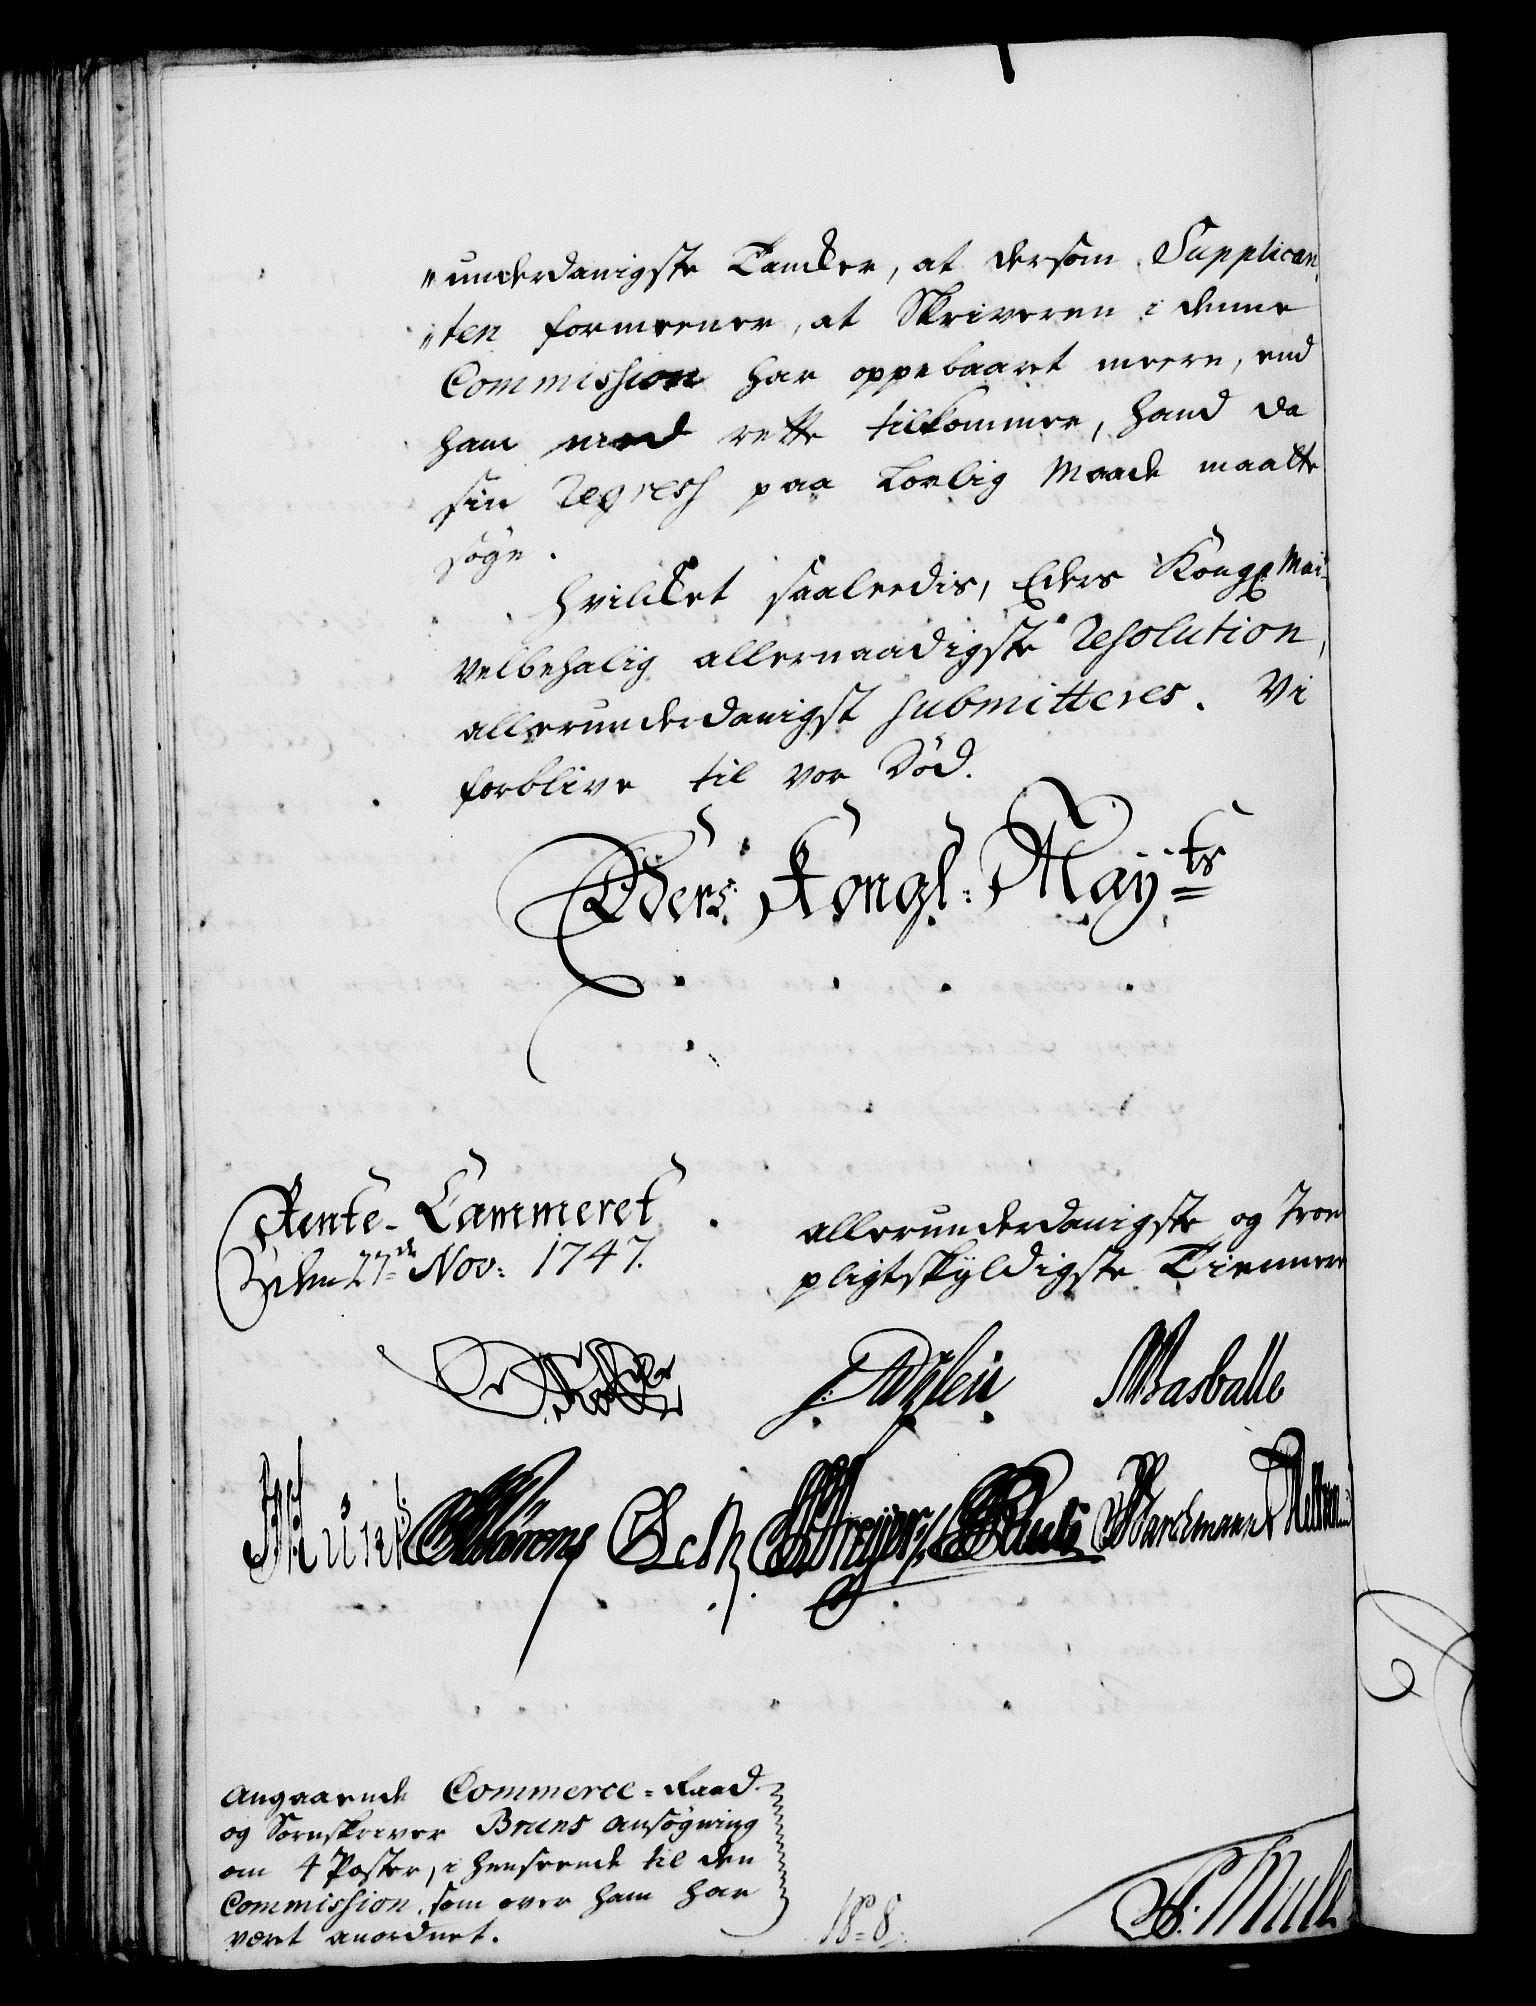 "underdanigste Tancker, at dersom Supplican
"ten formeener, at Skriveren i denne
Commission har oppebaaret meere, end
ham med rette tilkommer, hand da
sin Regress paa Lovlig Maade maatte
søge.
Hvilcket saaleedis, Eders Kongl Mai
velbehalig allernaadigste Resolution,
allerunderdanigst submitteres. Vi
forblive til vor Død.
Eders Kongl: Mayts
Rente-Cammeret
den 27de Nov: 1747.
allerunderdanigste og troe
pligtskyldigste Tiennere
Wasballe
Angaaende Commerce-Raad
og Sornskriver Bruns Ansøgning
om 4 Poster, i henseende til den
Commission, som over ham har
vært anordnet.